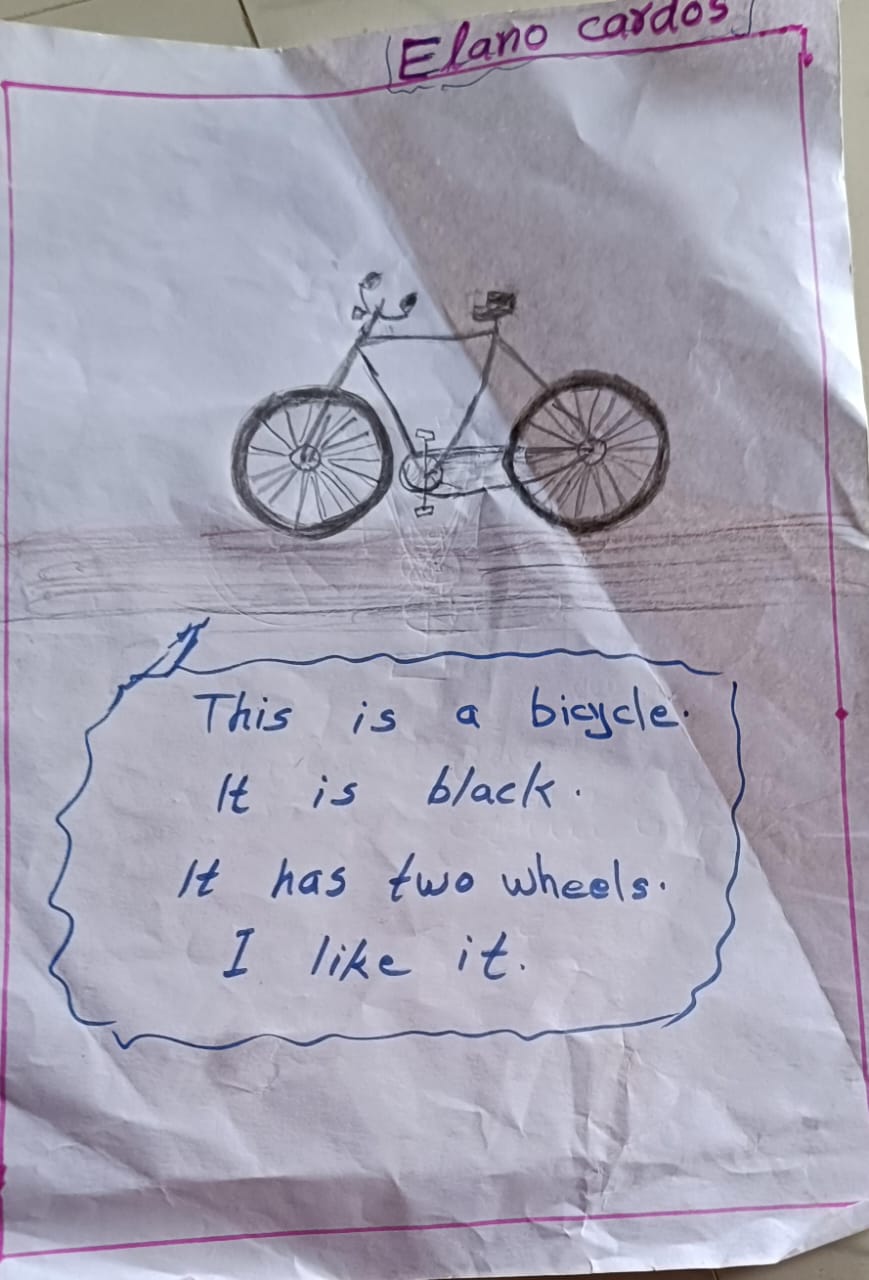 Elano cardos
This is a bicycle.
It is black.
It has two wheels.
I like it.